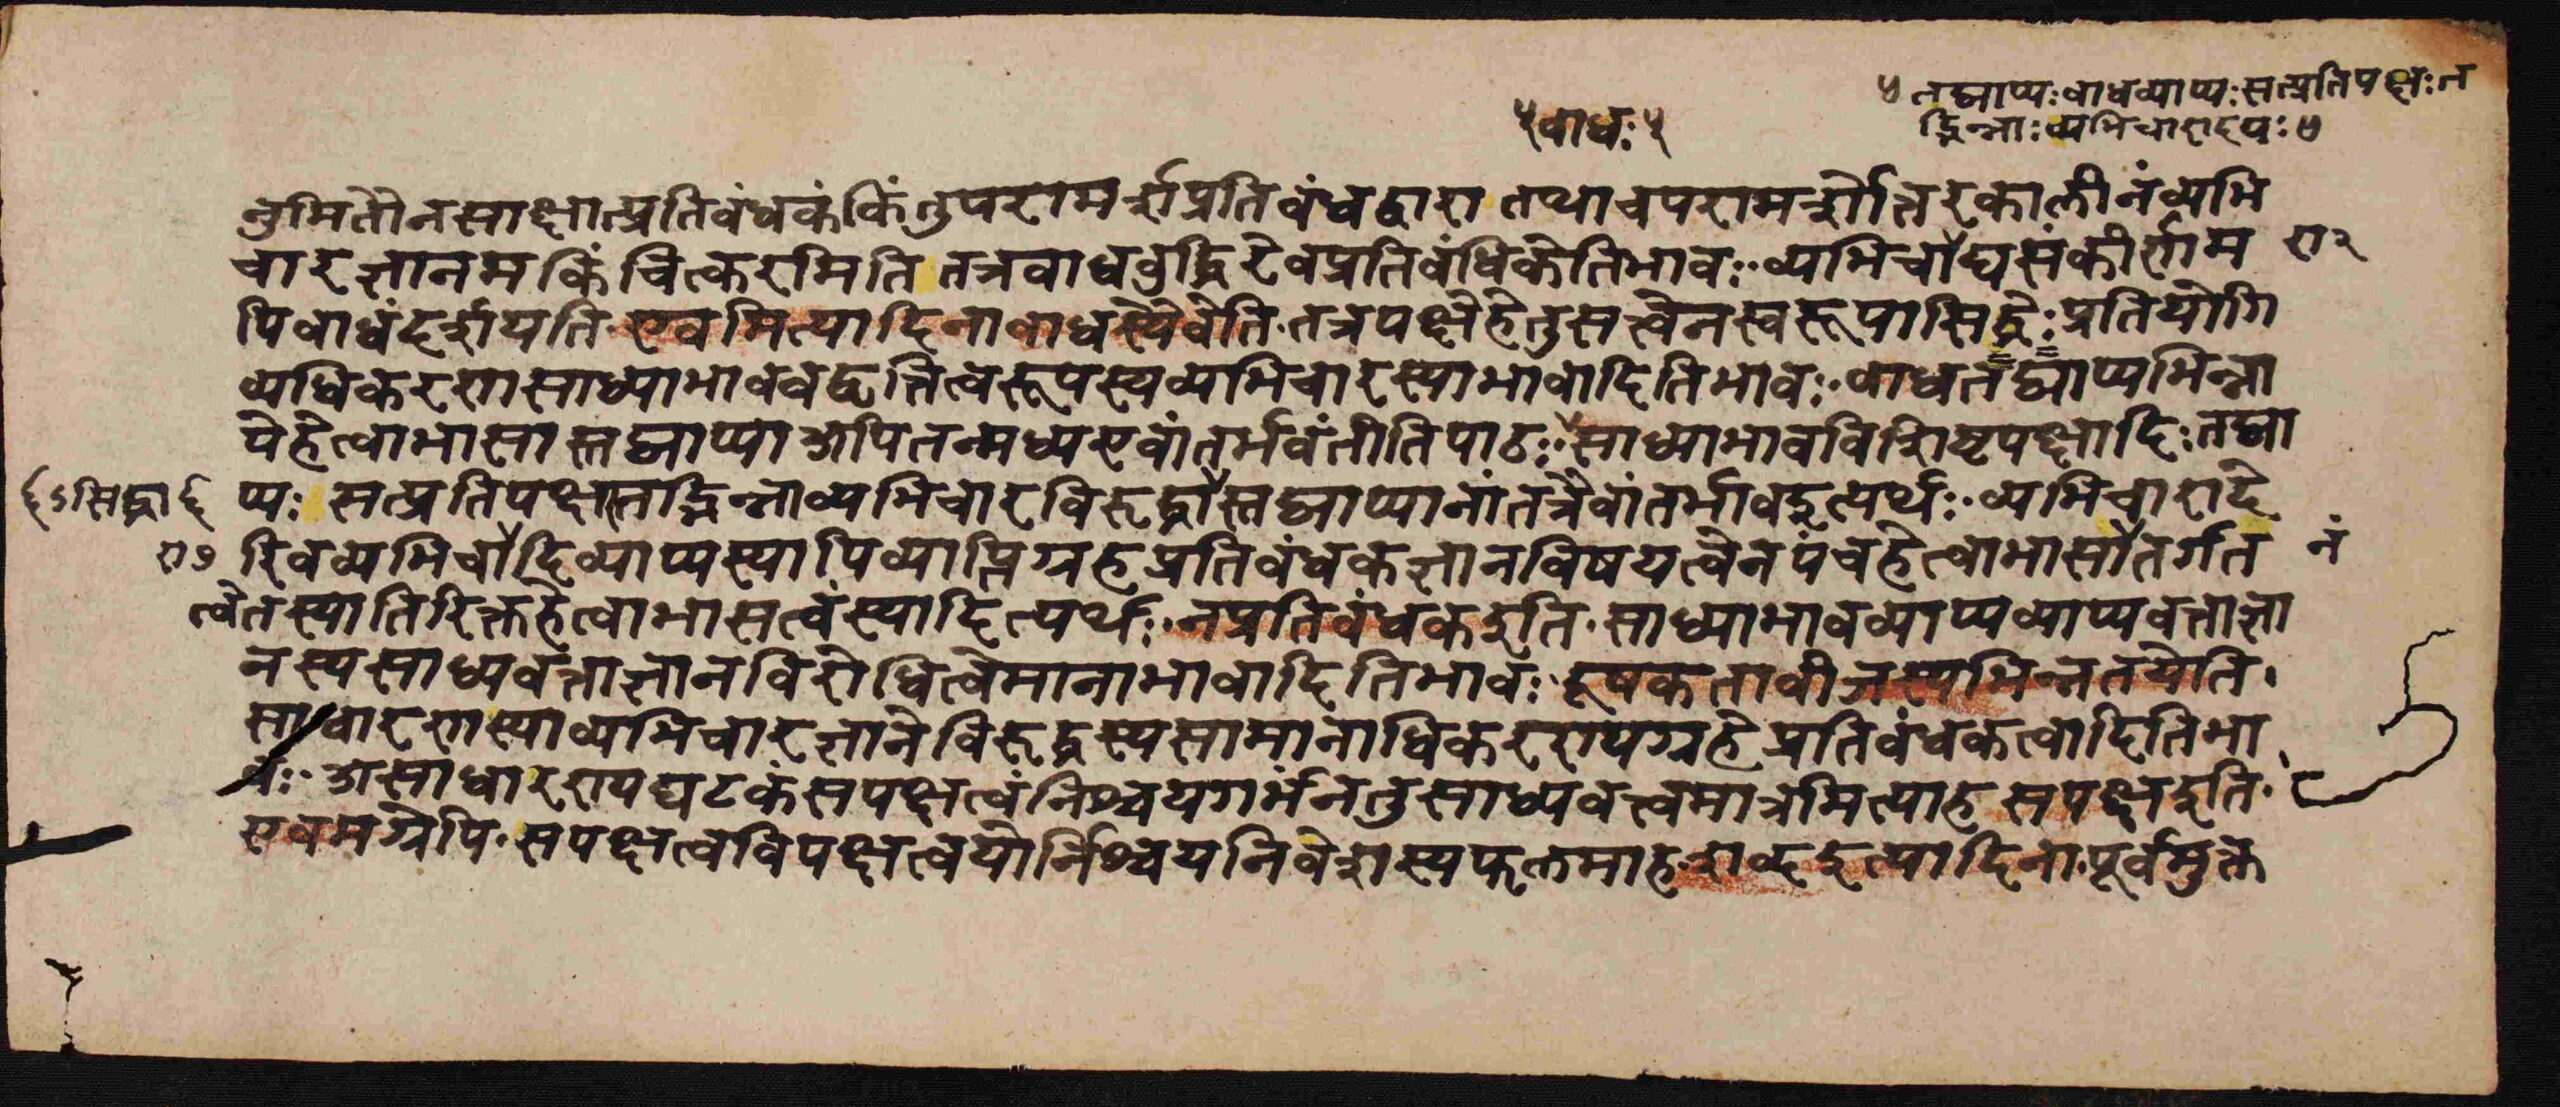 ५ तद्व्याप्यः बाधव्याप्यः सत्प्रतिपक्षः त
द्भिन्नाः व्यभिचारादयः ७
५ बाधः ५
नुमितौ न साक्षात्प्रतिबंधकं किं तु परामर्शप्रतिबंधद्वारा तथा च परामर्शोत्तरकालीनं व्यभि
चारज्ञानमकिंचित्करमिति तत्र बाधबुद्धिरेव प्रतिबंधिकेति भावः व्यभिचाद्यसंकीर्णम रा २
पि बाधं दर्शयति एवमित्यादिना बाधस्यैवेति तत्र पक्षे हेतुसत्त्वेन स्वरूपासिद्धेः प्रतियोगि
व्यधिकरणसाध्याभाववद्वृत्तित्वरूपस्य व्यभिचारस्याभावादिति भावः बाधतद्व्याप्यभिन्ना
ये हेत्वाभासास्तद्व्याप्या अपि तन्मध्य एवांतर्भवंतीति पाठः साध्याभावविशिष्टपक्षादिः तद्व्या
ऽसिद्धा ६ प्यः सत्प्रतिपक्षस्तद्भिन्ना व्यभिचारविरूद्धास्तद्व्याप्यानां तत्रैवांतर्भाव इत्यर्थः व्यभिचारादे
रा ७ रिव व्यभिचादिव्याप्यस्यापि व्याप्तिग्रहप्रतिबंधकज्ञानविषयत्वेन पंचहेत्वाभासांतर्गत नं
त्वे तस्यातिरिक्तहेत्वाभासत्वं स्यादित्यर्थः न प्रतिबंधक इति साध्याभावव्याप्यव्याप्यवत्ताज्ञा
नस्य साध्यवत्ताज्ञानविरोधित्वे मानाभावादिति भावः दूषकताबीजस्य भिन्नतयेति
साधारणस्याव्यभिचारज्ञाने विरूद्धस्य सामानाधिकरण्यग्रहे प्रतिबंधकत्वादिति भा
वः असाधारण्यघटकं सपक्षत्वं निश्चयगर्भं न तु साध्यवत्त्वमात्रमित्याह सपक्ष इति
एवमग्रेपि सपक्षत्वविपक्षत्वयोर्निश्चयनिवेशस्य फलमाह शब्द इत्यादिना पूर्वमुक्ते